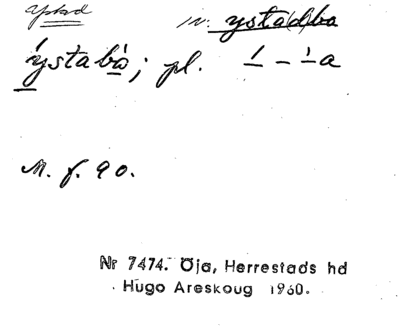 Ystad
iv. ystad(d)ba
ýstabò; pl. _́ – _̀ a
M. f. 90.
Nr 7474. Öja, Herrestads hd
Hugo Areskoug 1960.